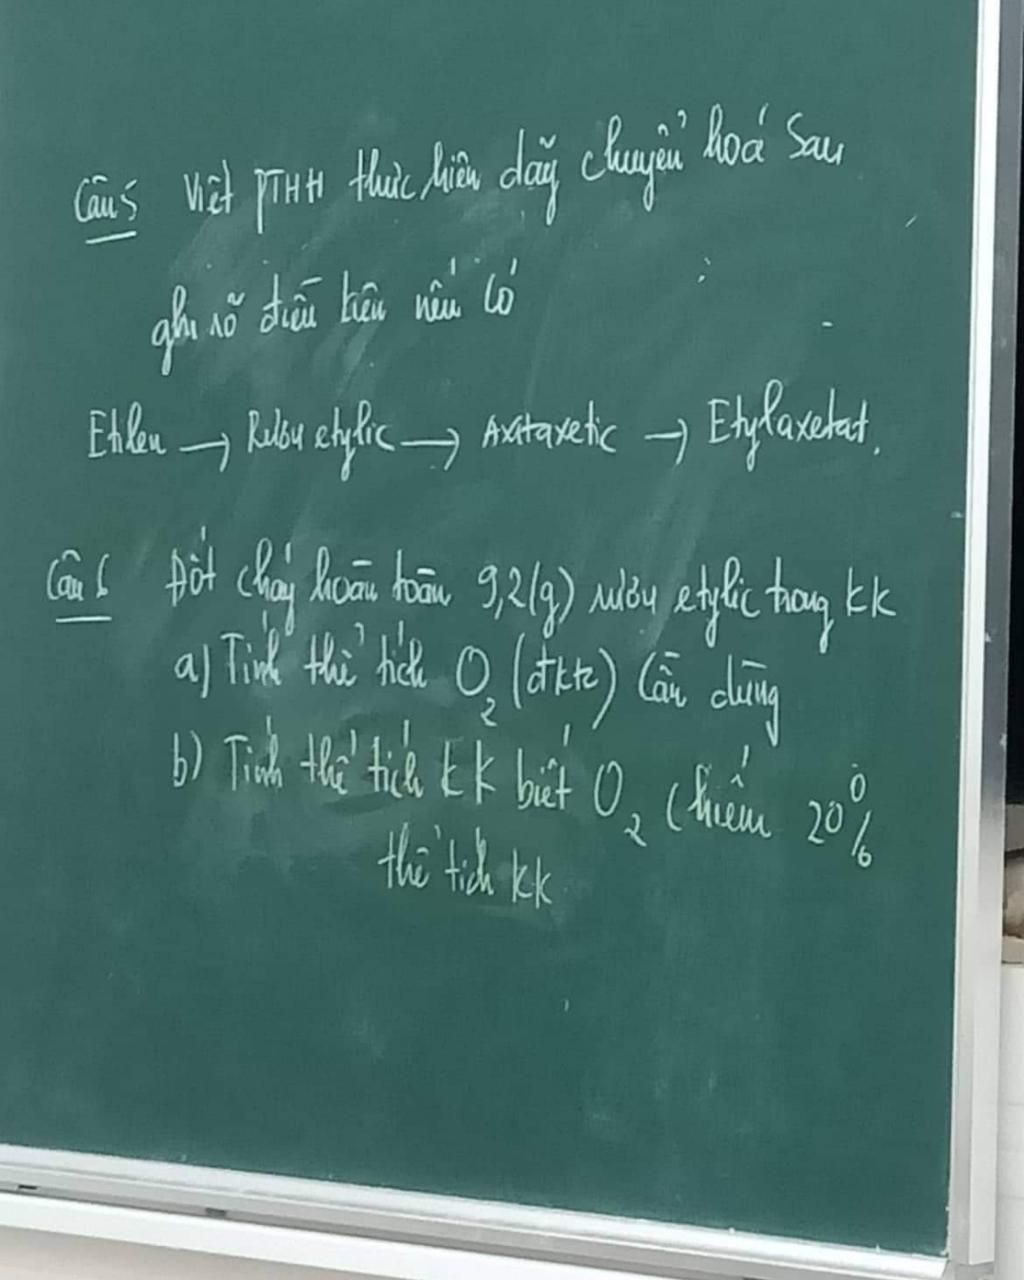 Câu 5 Viết PTHH thực hiện dãy chuyển hoá sau
ghi rõ điều kiện nếu có
Etilen → Rượu etylic → Axitaxetic → Etylaxetat.
Câu 6 Đốt cháy hoàn toàn 9,2(g) rượu etylic trong kk
a) Tính thể tích O₂ (đktc) cần dùng
b) Tính thể tích kk biết O₂ chiếm 20%
thể tích kk